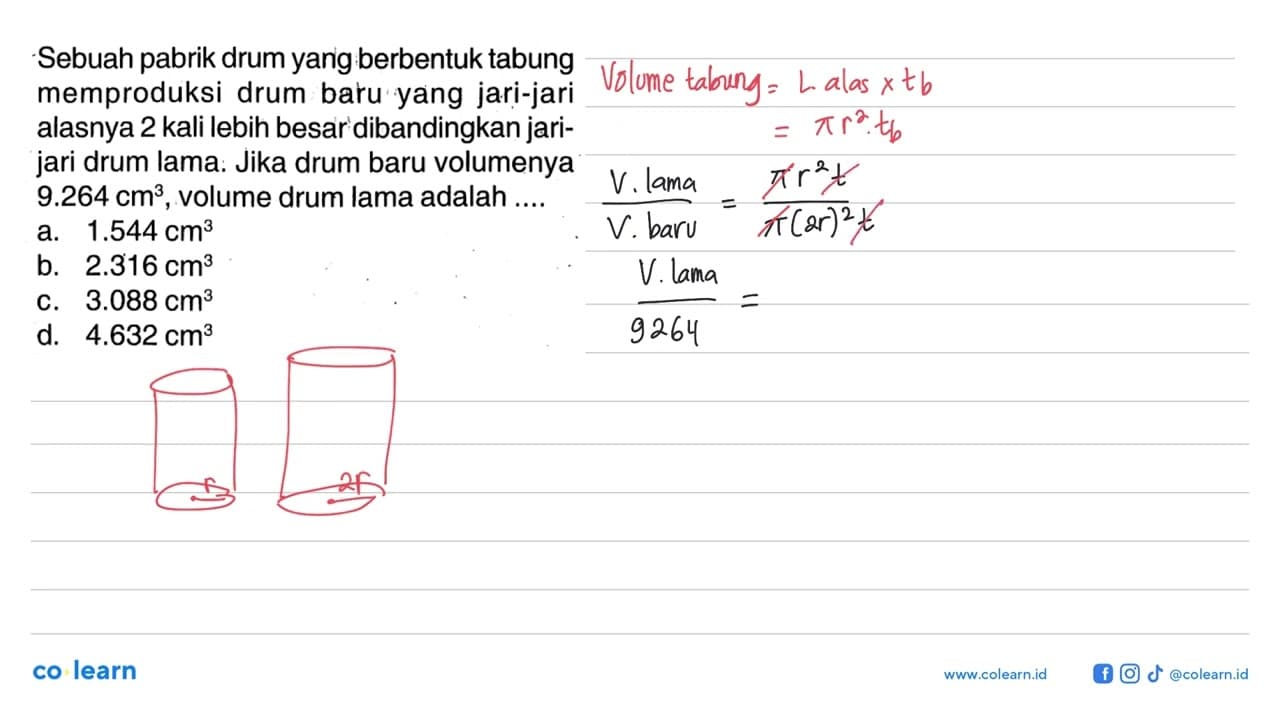 Sebuah pabrik drum yang berbentuk tabung
memproduksi drum baru yang jari-jari
alasnya 2 kali lebih besar dibandingkan jari-
jari drum lama. Jika drum baru volumenya
9.264 cm³, volume drum lama adalah ....
a. 1.544 cm³
b. 2.316 cm³
c. 3.088 cm³
d. 4.632 cm³
Volume tabung = L alas x tb
= πr². tb
V. lama / V. baru = πr²t / π(2r)²t
V. lama / 9264 =
r
2r
co learn
www.colearn.id
@colearn.id